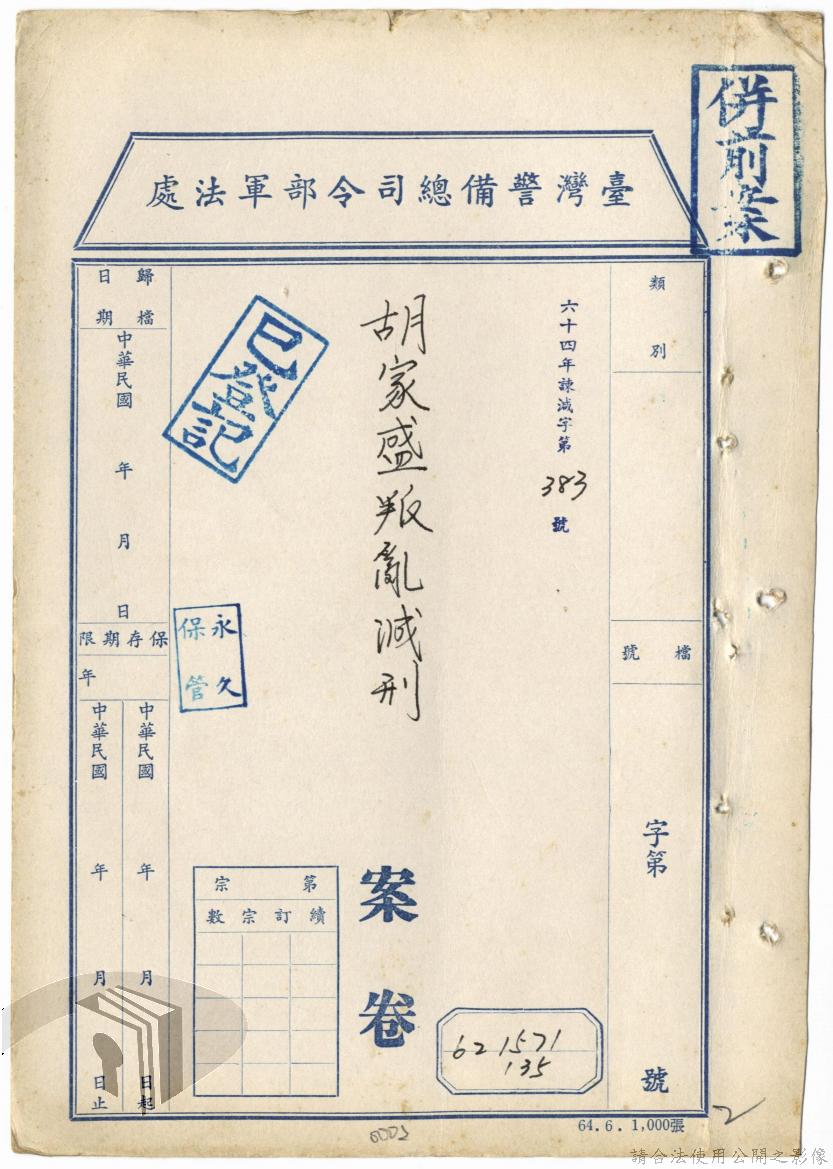 併前案
臺灣警備總司令部軍法處
類別
檔號
字第
號
六十四年諫減字第
383
號
胡家盛叛亂減刑
案卷
已登記
永久
保管
第宗
續訂宗數
62 1571
135
歸檔
日期
中華民國
年
月
日
保存期限
年
中華民國
年
月
日起
中華民國
年
月
日止
64.6.1,000張
2
請合法使用公開之影像